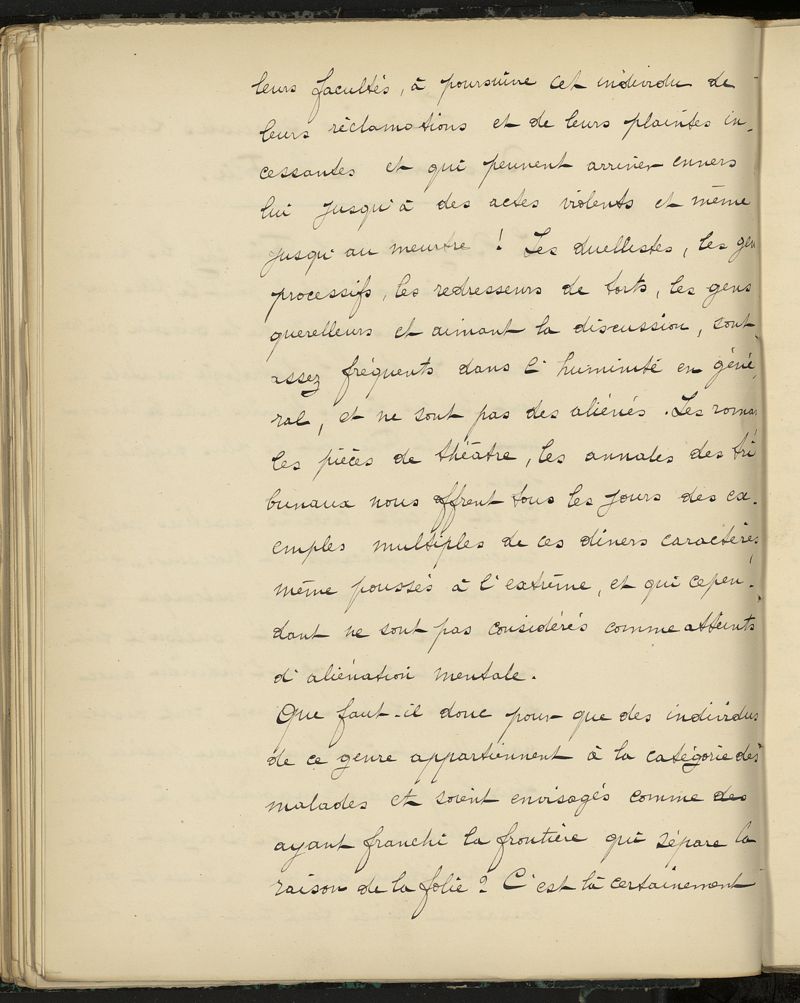 leurs facultés, à poursuivre cet individu de
leurs réclamations et de leurs plaintes in-
cessantes et qui peuvent arriver envers
lui jusqu'à des actes violents et même
jusqu'au meurtre ! Les duellistes, les gen
processifs, les redresseurs de torts, les gens
querelleurs et aimant la discussion, sont
assez fréquents dans l'huminité en géné-
ral, et ne sont pas des aliénés. Les roman
les pièces de théâtre, les annales des tri
bunaux nous offrent tous les jours des ex-
emples multiples de ces divers caractères
même poussés à l'extrême, et qui cepen-
dant ne sont pas considérés comme atteints
d'aliénation mentale.
Que faut-il donc pour que des individus
de ce genre appartiennent à la catégorie des
malades et soient envisagés comme des
ayant franchi la frontière qui sépare la
raison de la folie ? C'est là certainement